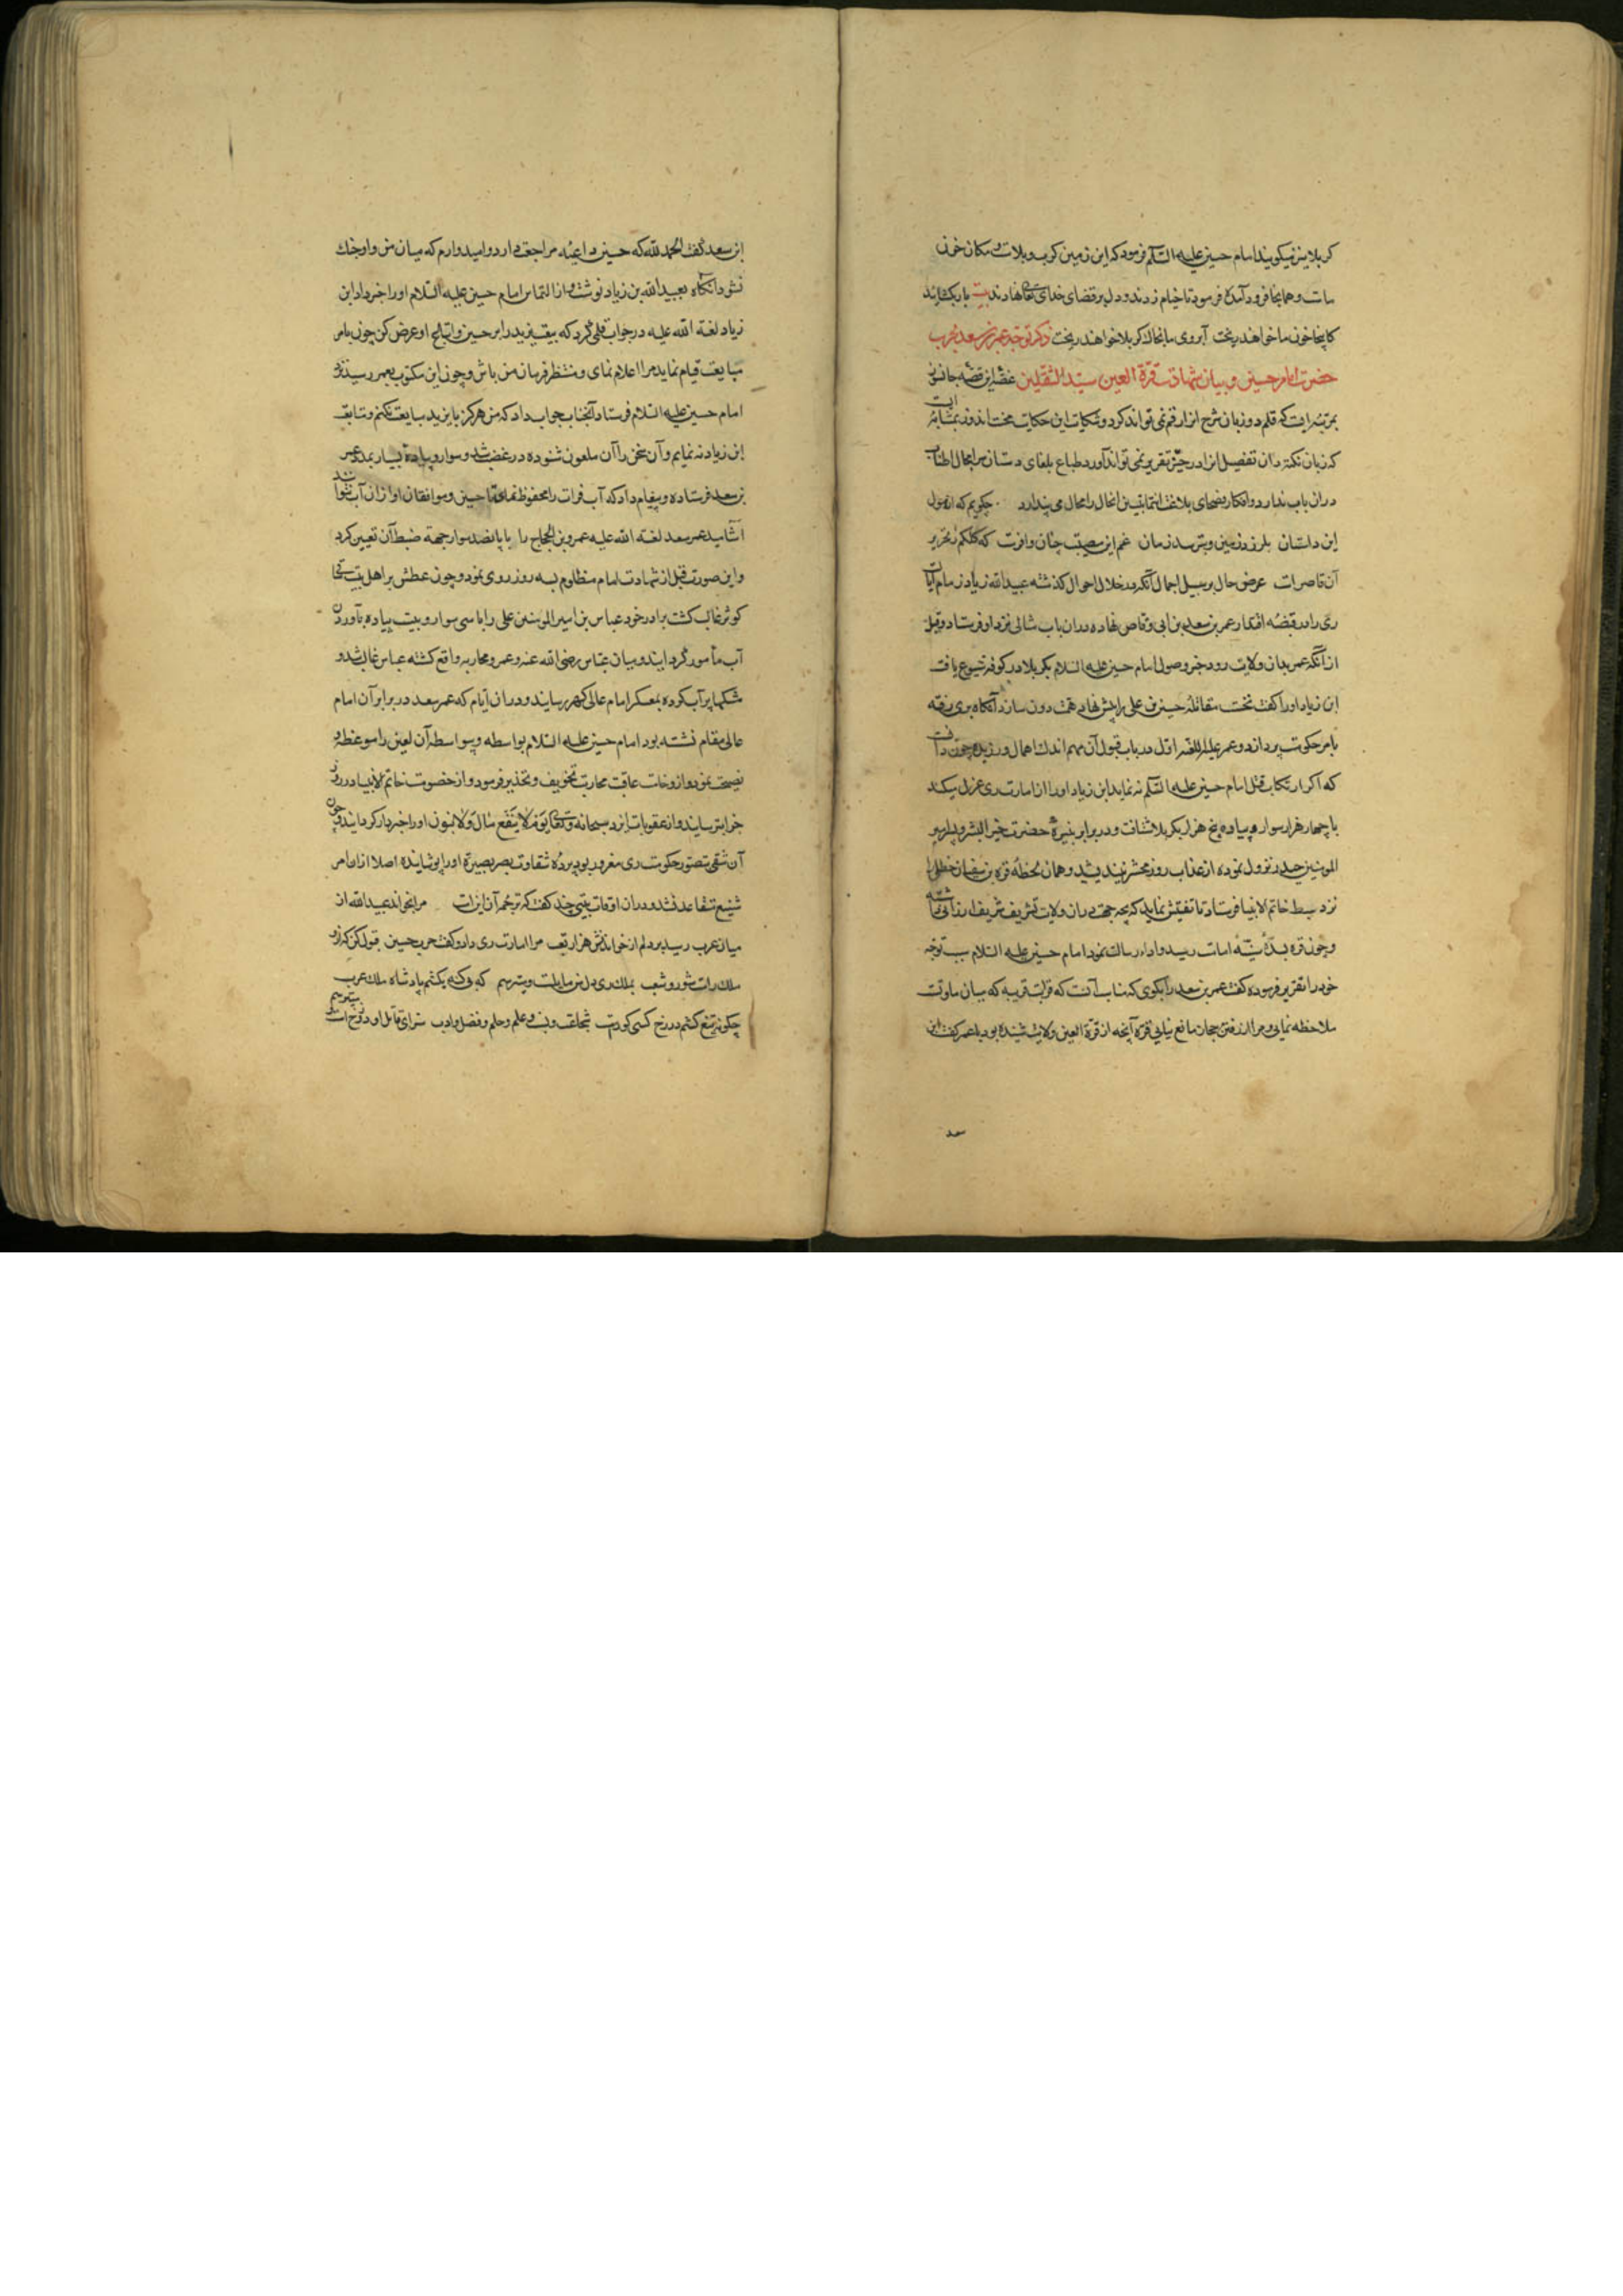 کربلا نیز میگویند امام حسین علیه السلم فرمود که این زمین کرب و بلاست و مکان خون
ماست و همانجا فرود آمده فرمود تا خیام زدند و دل بر قضای خدای تعالی نهادند بیت بار بکشائید
کاینجا خون ما خواهند ریخت آبروی ما بخاک کربلا خواهند ریخت ذکر توجه عمر بن سعد بحرب
حضرت امام حسین و بیان شهادت قرة العین سید الثقلین غصه این قصه جانسوز
بمرتبه ایست که قلم دو زبان شرح انرا رقم نمی تواند کرد و شکایت این حکایت محنت اندوز بمثابه ایست
که زبان نکته دان تفصیل انرا در حیز تقریر نمی تواند آورد طباع بلغای دستان سرا مجال اطناب
در ان باب ندارد و افکار فصحای بلاغت انتما تبیین انحال را محال می پندارد چگویم که از هول
این داستان بلرزد زمین و بترسد زمان غم این مصیبت چنان وافرست که کلکم ز تحریر
آن قاصرست عرض حال بر سبیل اجمال آنکه در خلال احوال گذشته عبید الله زیاد زمام ایالت
ری را در قبضه اقتدار عمر بن سعد بن ابی وقاص نهاده در ان باب مثالی نزد او فرستاد و قبل
از آنکه عمر بدان ولایت رود خبر وصول امام حسین علیه السلام بکربلا در کوفه شیوع یافت
ابن زیاد او را گفت نخست مقاتله حسین بن علی را پیش نهاد همت دون ساز و آنگاه بری رفته
بامر حکومت پرداز و عمر علیه اللعنه اول در باب قبول آن مهم اندک اهمال ورزیده چون دانست
که اگر ارتکاب قتل امام حسین علیه السلم ننماید ابن زیاد او را از امارت ری عزل میکند
با چهار هزار سوار و پیاده پنج هزار بکربلا شتافت و در برابر نبیره حضرت خیر البشر و پسر امیر
المومنین حیدر نزول نموده از عذاب روز محشر نیندیشید و همان لحظه قره بن سفیان حنظلی را
نزد سبط خاتم الانبیا فرستاد تا تفتیش نماید که بچه جهت دران ولایت تشریف شریف ارزانی داشته
و چون قره بسده سنیه امامت رسید و اداء رسالت نمود امام حسین علیه السلام سبب توجه
خود را تقریر فرموده گفت عمر بن سعد را بگوی که مناسب آنست که قرابت قریبه که میان ما و تست
ملاحظه نمائی و مرا از رفتن بجان مانع نیایی قره آنچه از قرة العین ولایت شنیده بود با عمر گفت ابن
سعد
ابن سعد گفت الحمد لله که حسین داعیه مراجعت دارد و امیدوارم که میان من و او جنک
نشود آنگاه بعبید الله بن زیاد نوشت و از التماس امام حسین علیه السلام او را خبر داد ابن
زیاد لعنه الله علیه در جواب قلمی کرد که بیعت یزید را بر حسین و اتباع او عرض کن چون بامر
مبایعت قیام نماید مرا اعلام نمای و منتظر فرمان من باش و چون این مکتوب بعمر رسید نزد
امام حسین علیه السلام فرستاد آنجناب جواب داد که من هرگز با یزید مبایعت نکنم و متابعت
ابن زیاد ننمایم و آن سخن را آن ملعون شنوده در غضب شد و سوار و پیاده بسیار بمدد عمر
بن سعد فرستاده و پیغام داد که آب فرات را محفوظ نمای تا حسین و موافقان او از ان آب نتوانند
آشامید عمر سعد لعنه الله علیه عمرو بن الحجاج را با پانصد سوار جهة ضبط آن تعیین کرد
و این صورت قبل از شهادت امام مظلوم بسه روز روی نمود و چون عطش بر اهل بیت سخا
کوثر غالب گشت برادر خود عباس بن امیر المومنین علی را با سی سوار و بیست پیاده بآوردن
آب مأمور گردانید و میان عباس رضی الله عنه و عمرو محاربه واقع گشته عباس غالب شد و
مشکها پر آب کرده بمعسکر امام عالی گهر رسانید و دران ایام که عمر سعد در برابر آن امام
عالی مقام نشسته بود امام حسین علیه السلام بواسطه و بیواسطه آن لعین را موعظه و
نصیحت نمود و از وخامت عاقبت محاربت تخویف و تحذیر فرمود و از خصومت خاتم الانبیا در روز
جزا بترسانید و از عقوبات ایزد سبحانه و تعالی یوم لا ینفع مال و لا بنون او را خبردار گردانید و چون
آن شقی بتصور حکومت ری مغرور بود پرده شقاوت بصر بصیرة او را پوشانیده اصلا از ان امر
شنیع متقاعد نشد و دران اوقات بیتی چند گفت که ترجمه آن اینست مرا بخواند عبید الله از
میان عرب رسید بر دلم از خواندنش هزار تعب مرا امارت ری داد و گفت حرب حسین قبول کن که ازو
ملک راست شور و شغب بملک ری دل من مایلست و میترسم که چگونه بکشم پادشاه ملک عرب
چگونه تیغ کشم در رخ کسی کورست شجاعت و نسب و علم و حلم و فضل و ادب سزای قاتل او دوزخ است